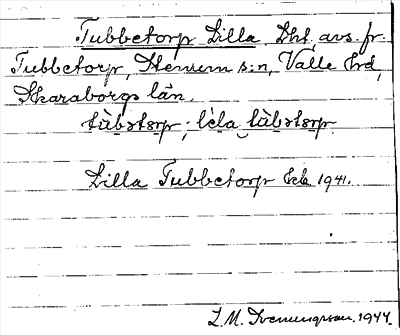 Tubbetorp Lilla, Lht. avs. fr.
Tubbetorp, Stenums s:n, Valle hd,
Skaraborgs län.
tùbətɔrp; lìla tùbətɔrp
Lilla Tubbetorp Eck 1941.
L.M. Svenungsson. 1944.